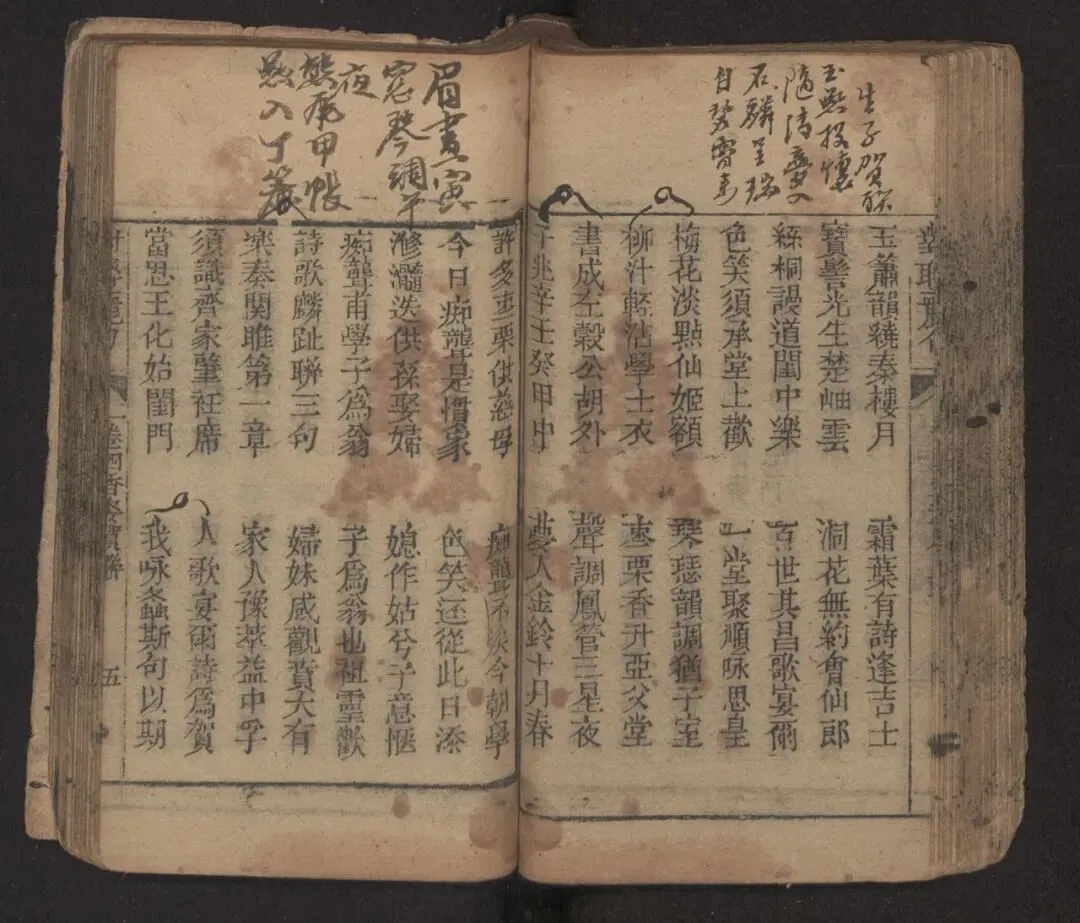 生子賀聯
玉燕投懷
隨清夢
石麟呈瑞
自
玉簫韻繞秦樓月
霜葉有詩逢吉士
寶髻光生楚岫雲
洞花無約會仙郎
絲桐謾道閨中樂
百世其昌歌宴爾
色笑須承堂上歡
一堂聚順咏思皇
梅花淡點仙姬額
琴瑟韻調猶子室
柳汁輕沾學士衣
棗栗香升亞父堂
書成左穀公胡外
聲調鳳管三星夜
子兆辛壬癸甲中
夢入金鈴十月春
眉畫寅
窓琴調午
夜
熊尾甲帳
入丁箴
許多棗栗供慈母
痴聾不以今朝學
今日痴聾是慣家
色笑還從此日添
滫瀡迭供孫娶婦
媳作姑兮子意愜
痴聾甫學子爲翁
子爲翁也祖靈歡
詩歌麟趾聯三句
婦妹咸觀賁大有
樂奏關雎第一章
家人豫萃益中孚
須識齊家肇袵席
人歌宴爾詩爲賀
當思王化始閨門
我咏螽斯句以期
五